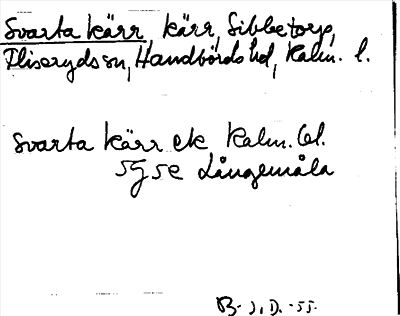 Svarta kärr, kärr, Sibbetorp,
Fliseryds sn, Handbörds hd, Kalm. l.
Svarta kärr ek Kalm. bl.
5 G 5 e Långemåla
B. J. D. -55.